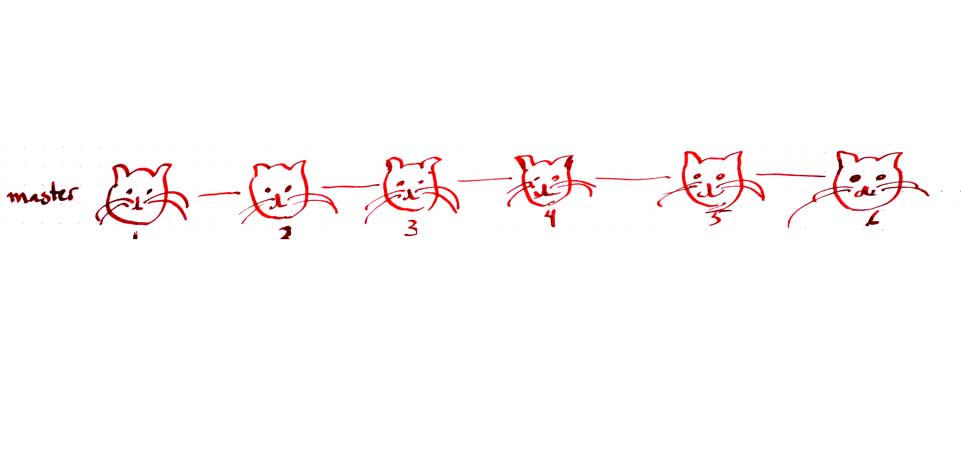 master
1 2 3 4 5 6